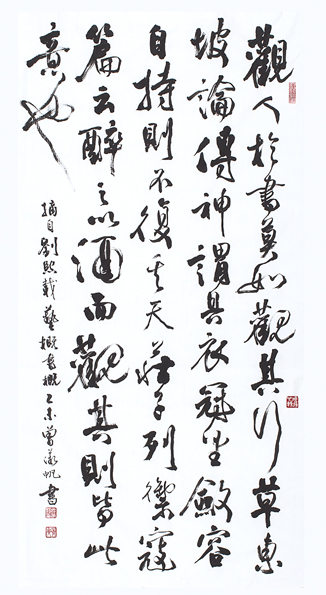 觀人於書莫如觀其行草東
坡論傳神謂具衣冠坐斂容
自持則不復見其天莊子列禦寇
篇云醉之以酒而觀其則皆此
意也
摘自劉熙載藝概書概乙未曾漾帆書